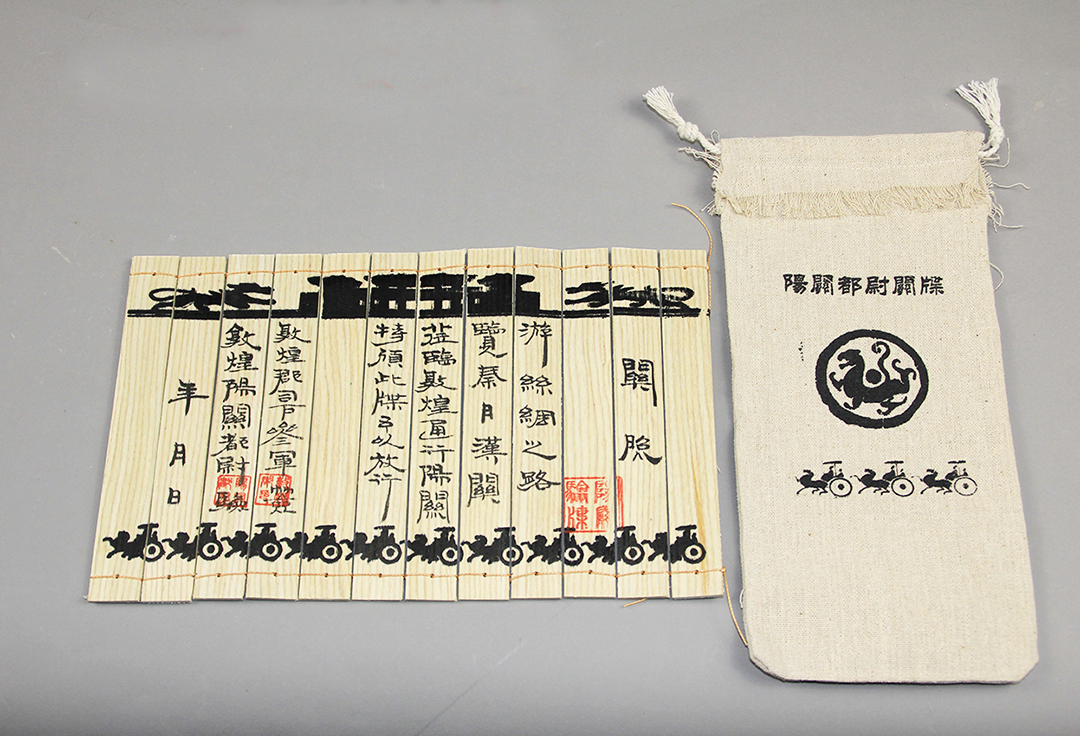 關照
游絲綢之路
覽秦月漢關
蒞臨敦煌通行陽關
特頒此牒予以放行
敦煌郡司戶參軍
敦煌陽關都尉
年月日
陽關都尉關牒